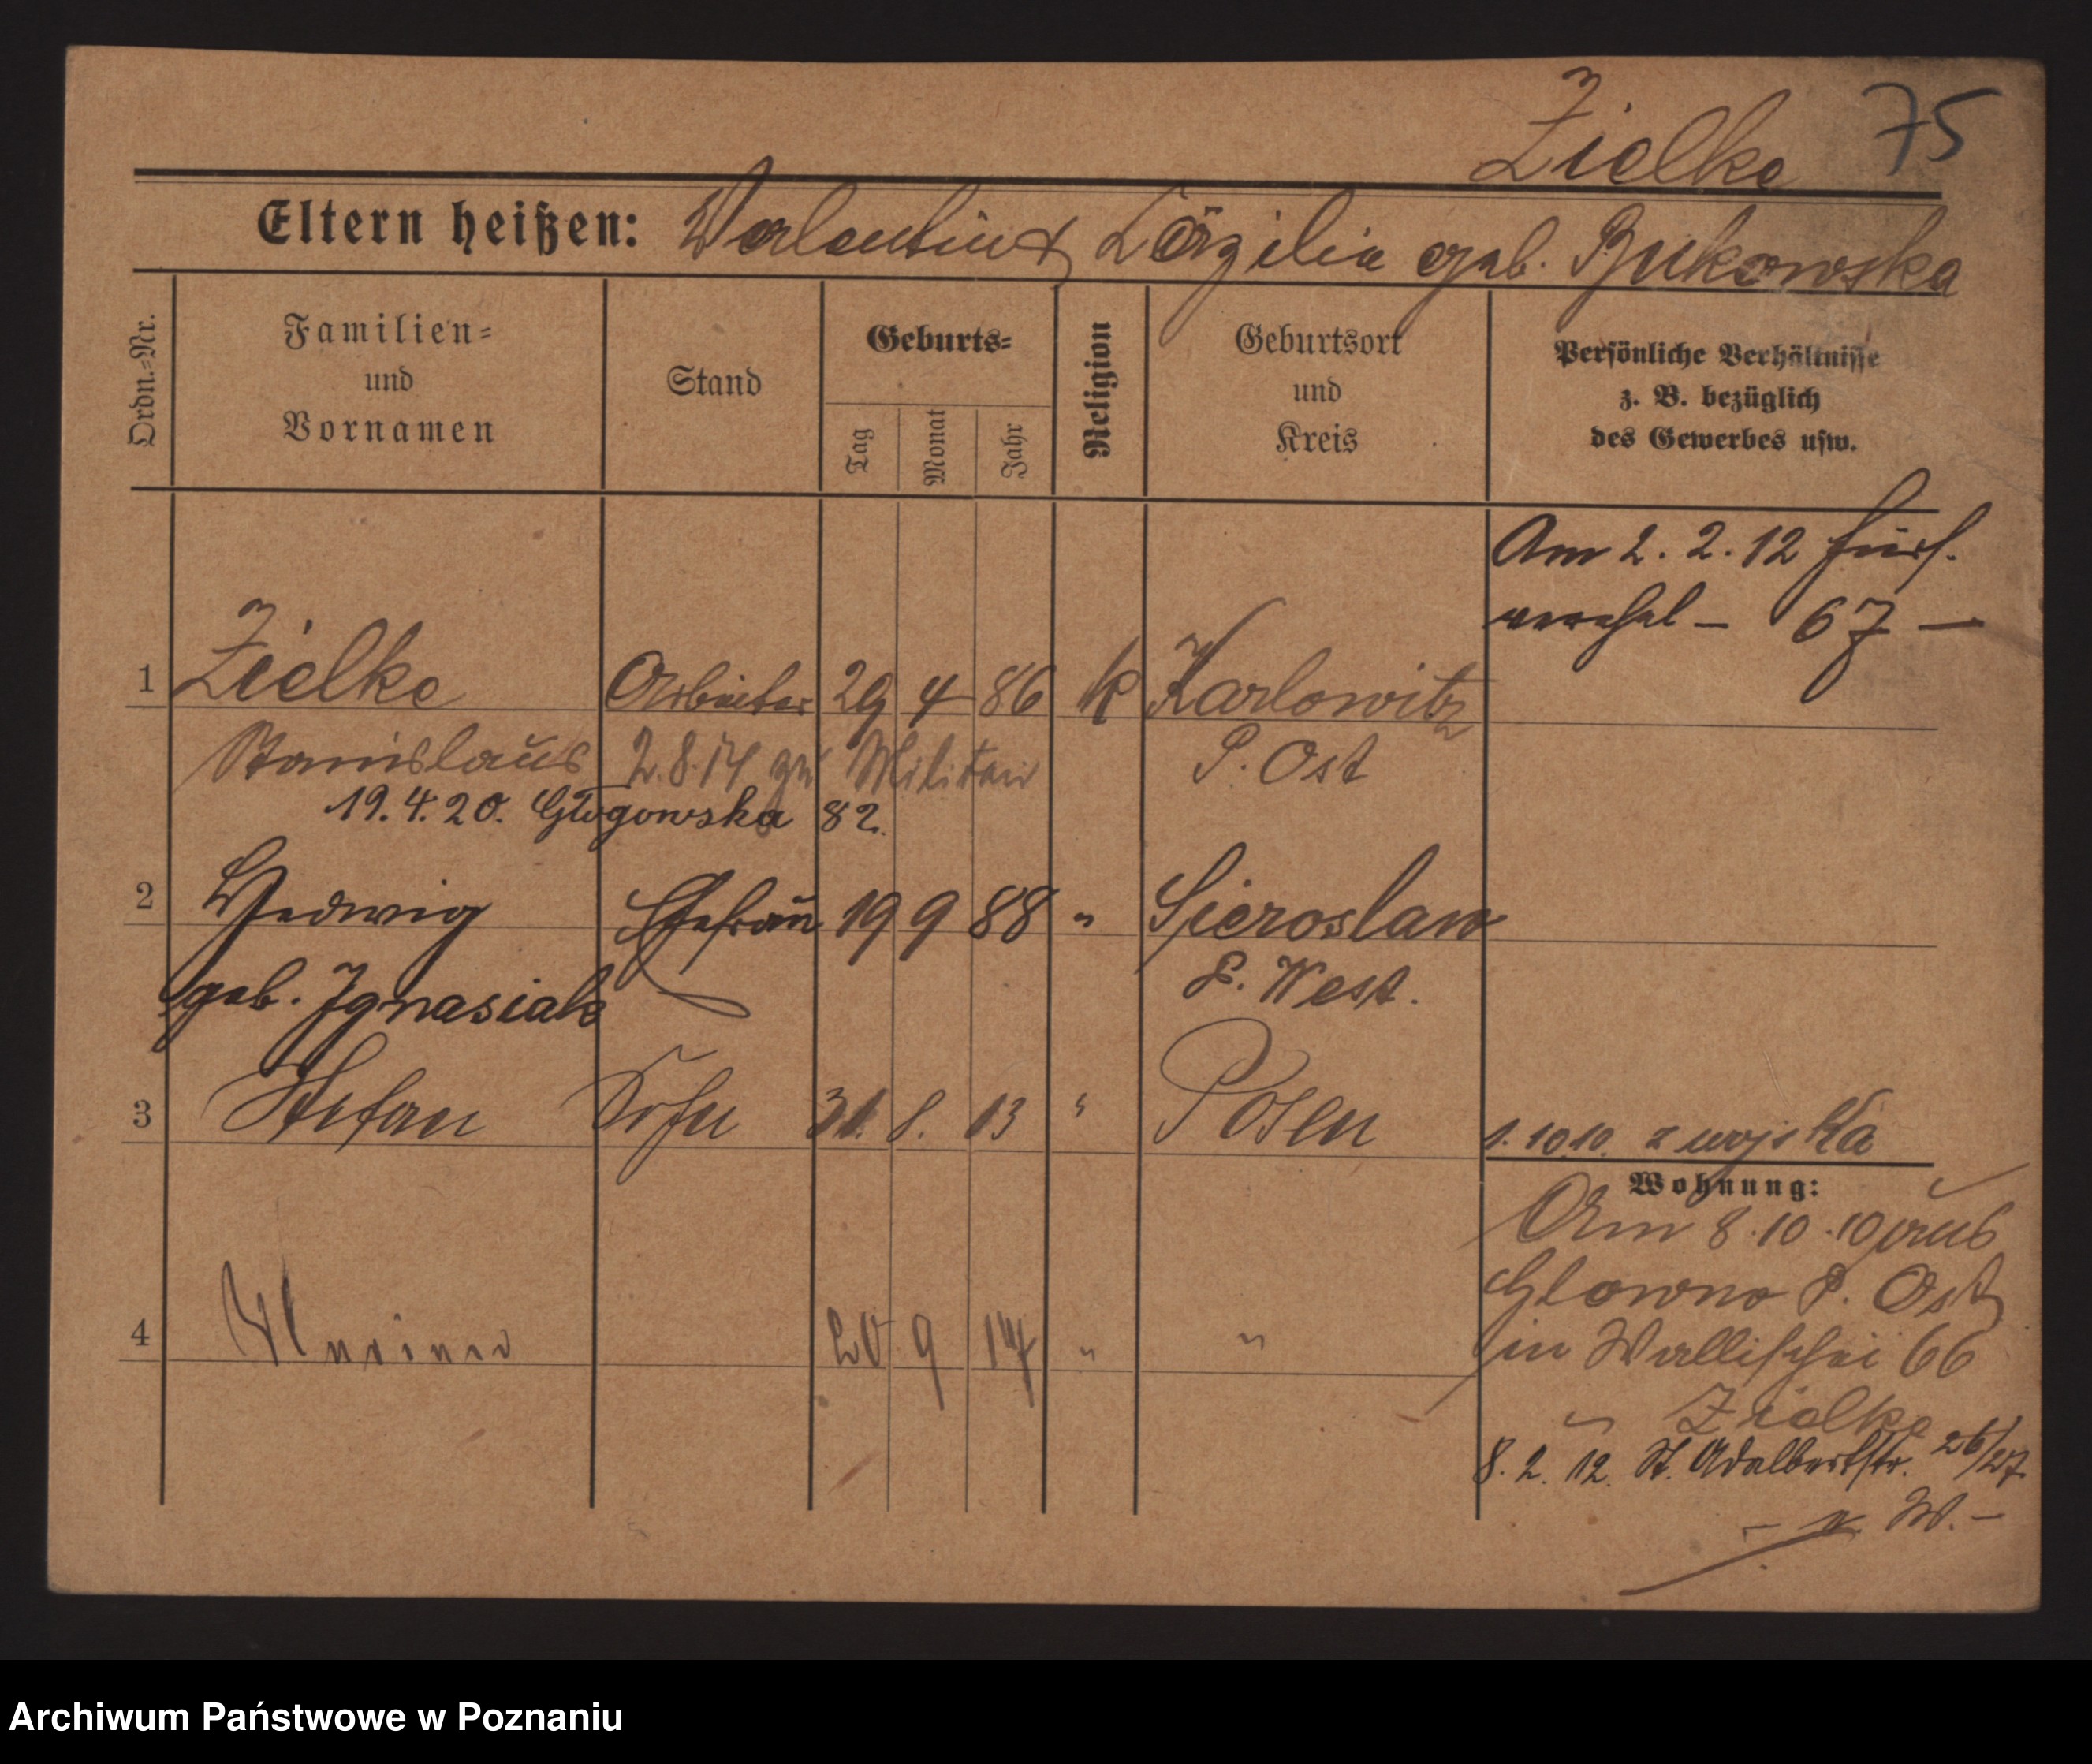 Zielke 75
Eltern heißen: Valentin & Cäzilia geb. Bukowska
Ordn.=Nr.
Familien=
und
Vornamen
Stand
Geburts=
Tag
Monat
Jahr
Religion
Geburtsort
und
Kreis
Persönliche Verhältnisse
z. B. bezüglich
des Gewerbes usw.
Am 2. 2. 12
67 —
1 Zielke Arbeiter 29 4 86 k Karlowitz
Stanislaus 2.8.14 zu Militär P. Ost
19.4.20. Głogowska 82.
2 Hedwig Ehefrau 19 9 88 " Sieroslaw
geb. Ignasiak P. West.
3 Stefan Sohn 31. 8. 13 " Posen
1. 10 10. z wojska
Wohnung:
Am 8.10.10 aus
Glowno P. Ost
in Wallischei 66
" Zielke
4 20 9 14 " "
8. 2. 12. St. Adalbertstr. 26/27.
W. —
Archiwum Państwowe w Poznaniu